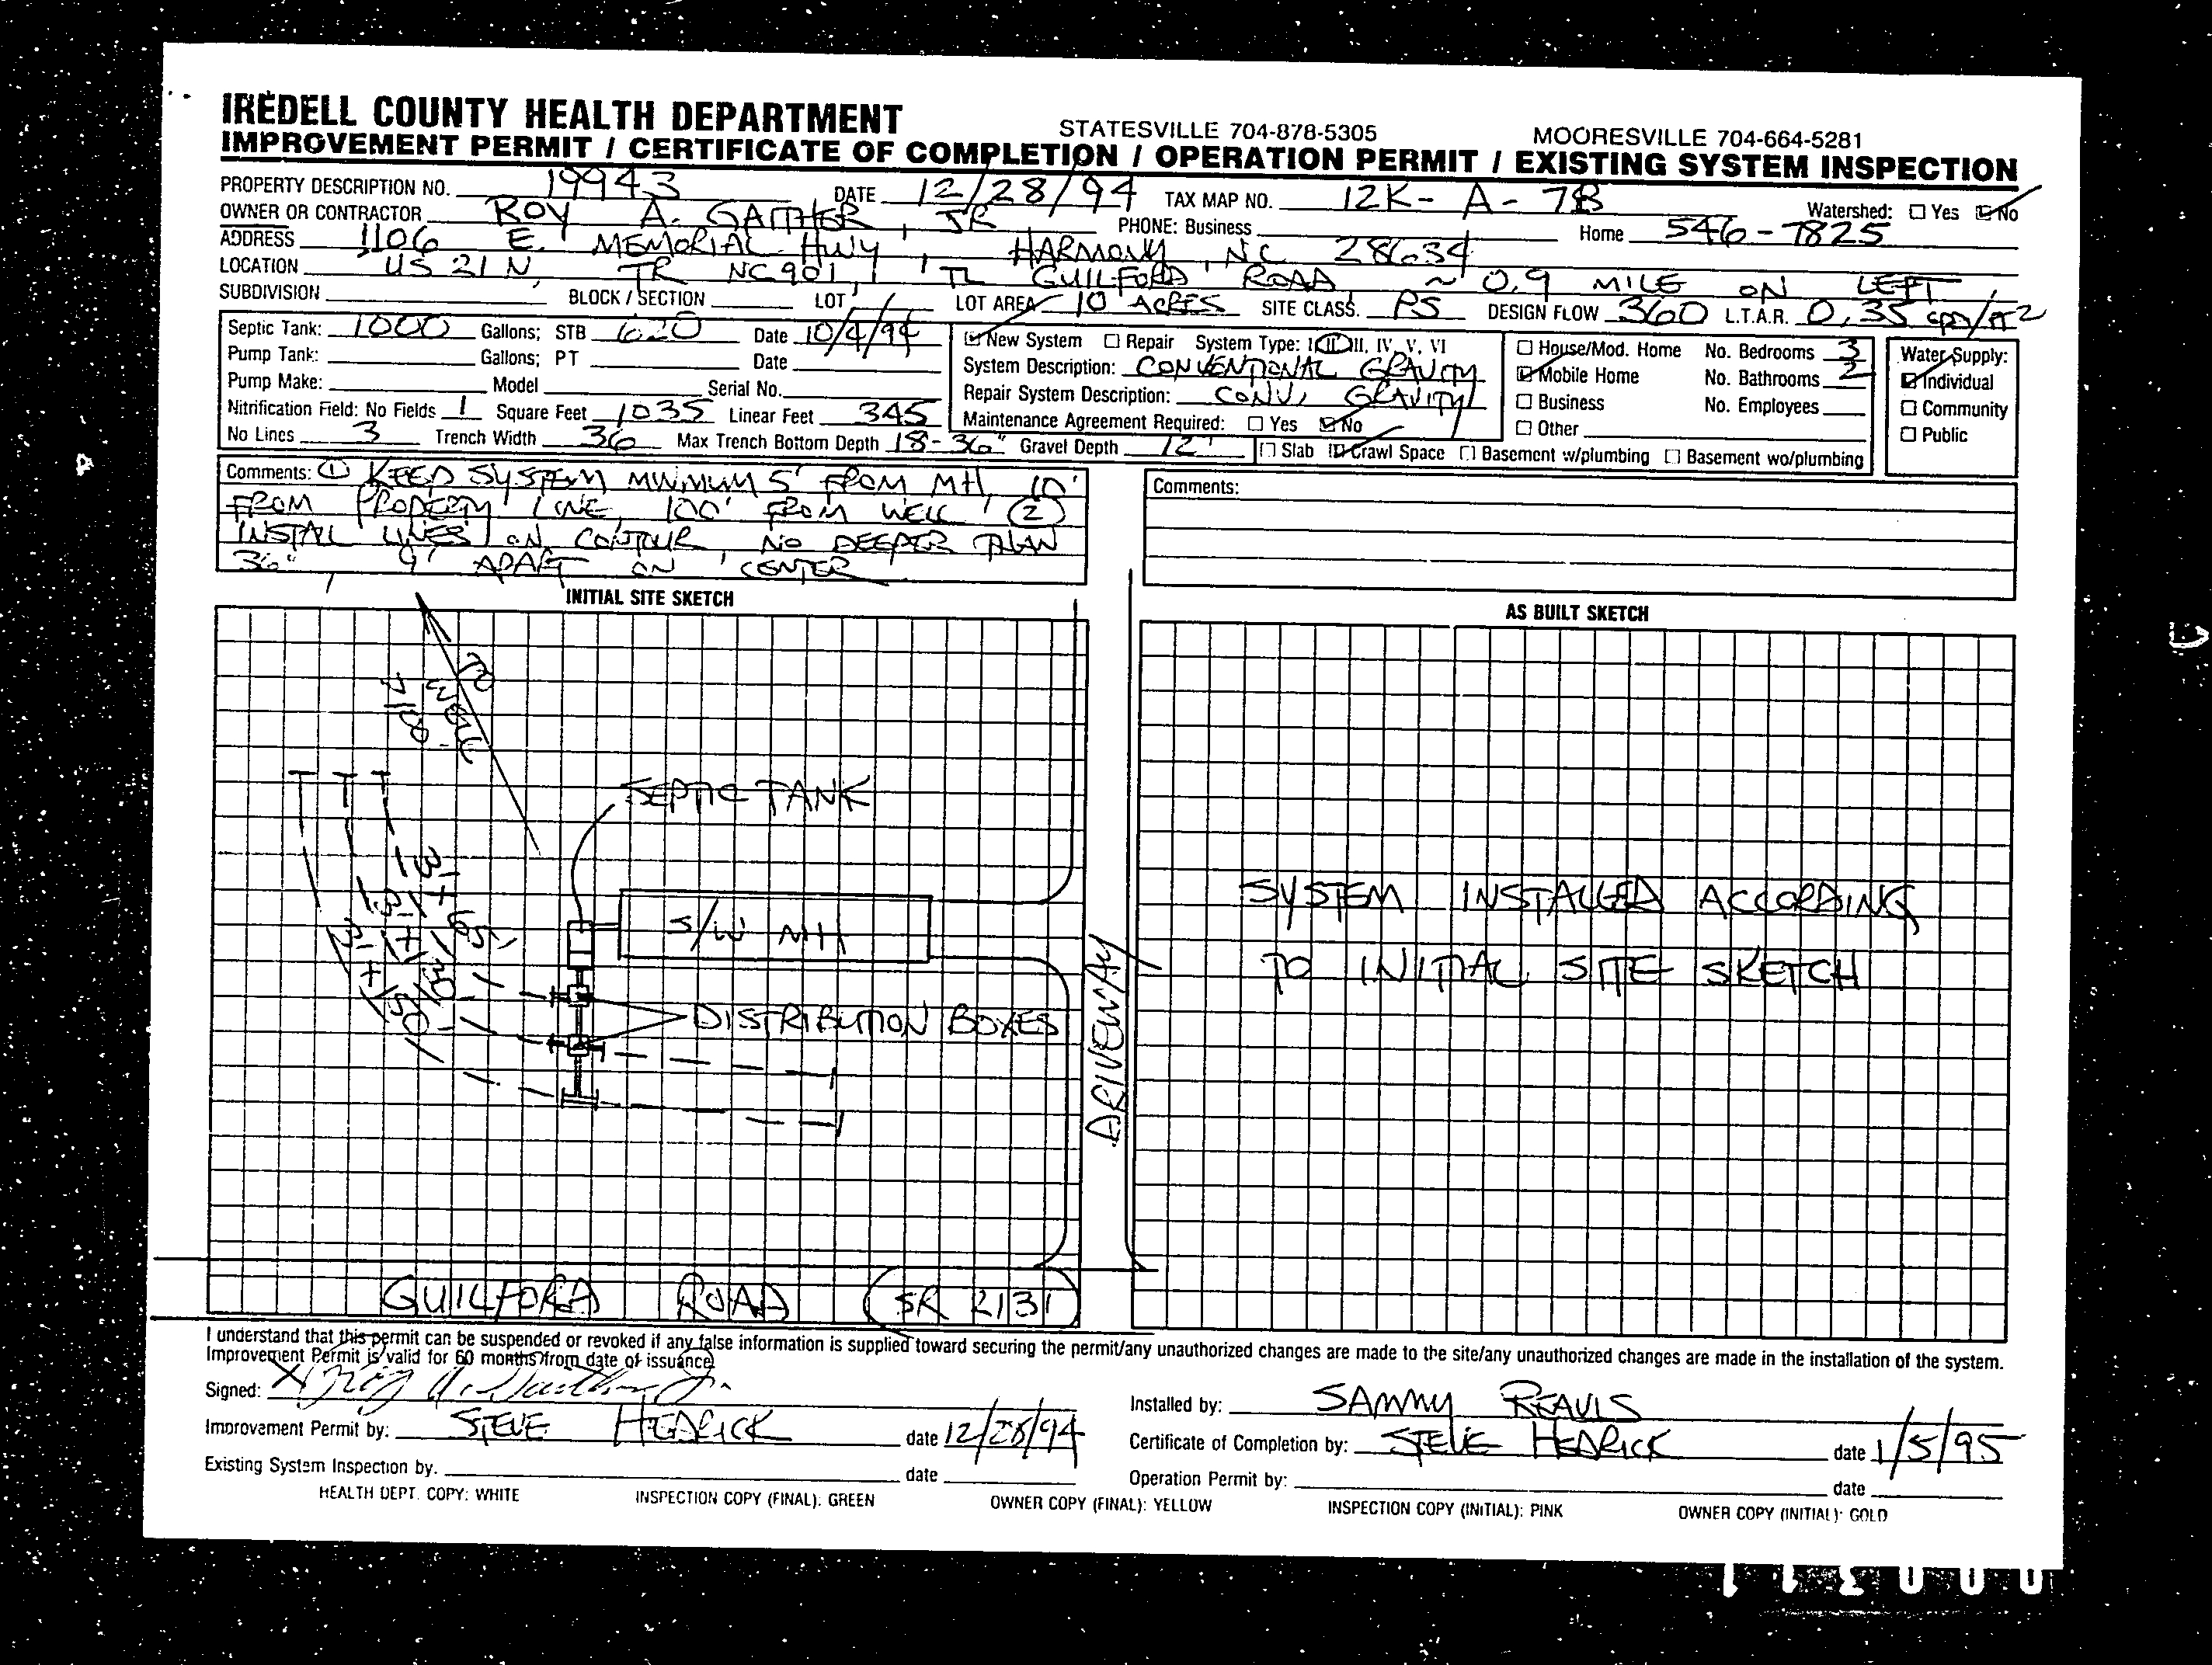 IREDELL COUNTY HEALTH DEPARTMENT STATESVILLE 704-878-5305 MOORESVILLE 704-664-5281
IMPROVEMENT PERMIT / CERTIFICATE OF COMPLETION / OPERATION PERMIT / EXISTING SYSTEM INSPECTION
PROPERTY DESCRIPTION NO. 19943 DATE 12/28/94 TAX MAP NO. 12K-A-7B Watershed: ☐ Yes ☑ No
OWNER OR CONTRACTOR ROY A. GAITHER, JR PHONE: Business Home 546-7825
ADDRESS 1106 E. MEMORIAL HWY, HARMONY, NC 28634
LOCATION US 21 N, TR NC 901, TL GUILFORD ROAD, ~ 0.9 MILE ON LEFT
SUBDIVISION BLOCK / SECTION LOT LOT AREA 10 ACRES SITE CLASS. PS DESIGN FLOW 360 L.T.A.R. 0.35 gpd/ft2
Septic Tank: 1000 Gallons; STB 620 Date 10/4/94
Pump Tank: Gallons; PT Date
Pump Make: Model Serial No.
Nitrification Field: No Fields 1 Square Feet 1035 Linear Feet 345
No Lines 3 Trench Width 36 Max Trench Bottom Depth 18-36" Gravel Depth 12"
☑ New System ☐ Repair System Type: I, II, III, IV, V, VI
System Description: CONVENTIONAL GRAVITY
Repair System Description: CONV. GRAVITY
Maintenance Agreement Required: ☐ Yes ☑ No
☐ House/Mod. Home No. Bedrooms 3
☑ Mobile Home No. Bathrooms 2
☐ Business No. Employees
☐ Other
☐ Slab ☑ Crawl Space ☐ Basement w/plumbing ☐ Basement wo/plumbing
Water Supply:
☑ Individual
☐ Community
☐ Public
Comments: ① KEEP SYSTEM MINIMUM 5' FROM MH, 10'
FROM PROPERTY LINE, 100' FROM WELL ②
INSTALL LINES ON CONTOUR, NO DEEPER THAN
36", 9' APART ON CENTER
Comments:
INITIAL SITE SKETCH
TO WELL
SEPTIC TANK
S/W MH
DISTRIBUTION BOXES
DRIVEWAY
GUILFORD ROAD SR 2131
AS BUILT SKETCH
SYSTEM INSTALLED ACCORDING
TO INITIAL SITE SKETCH
I understand that this permit can be suspended or revoked if any false information is supplied toward securing the permit/any unauthorized changes are made to the site/any unauthorized changes are made in the installation of the system.
Improvement Permit is valid for 60 months from date of issuance.
Signed: X Roy A. Gaither Jr.
Improvement Permit by: STEVE HEDRICK date 12/28/94
Existing System Inspection by. date
Installed by: SAMMY REAVIS
Certificate of Completion by: STEVE HEDRICK date 1/5/95
Operation Permit by: date
HEALTH DEPT. COPY: WHITE INSPECTION COPY (FINAL): GREEN OWNER COPY (FINAL): YELLOW INSPECTION COPY (INITIAL): PINK OWNER COPY (INITIAL): GOLD